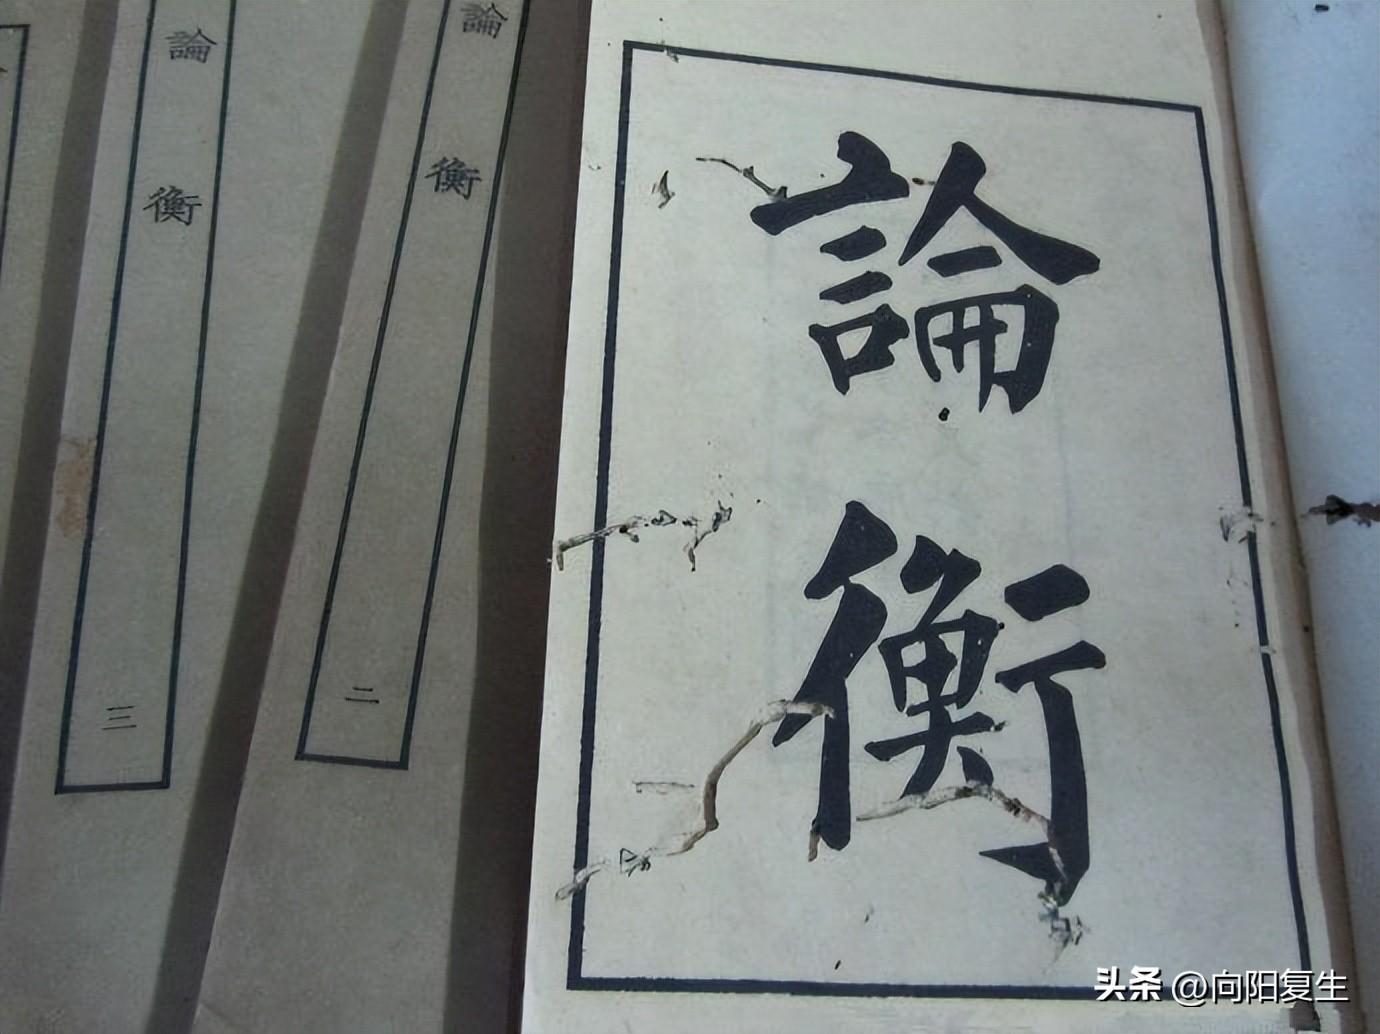 論衡
論衡
二
論衡
三
头条 @向阳复生